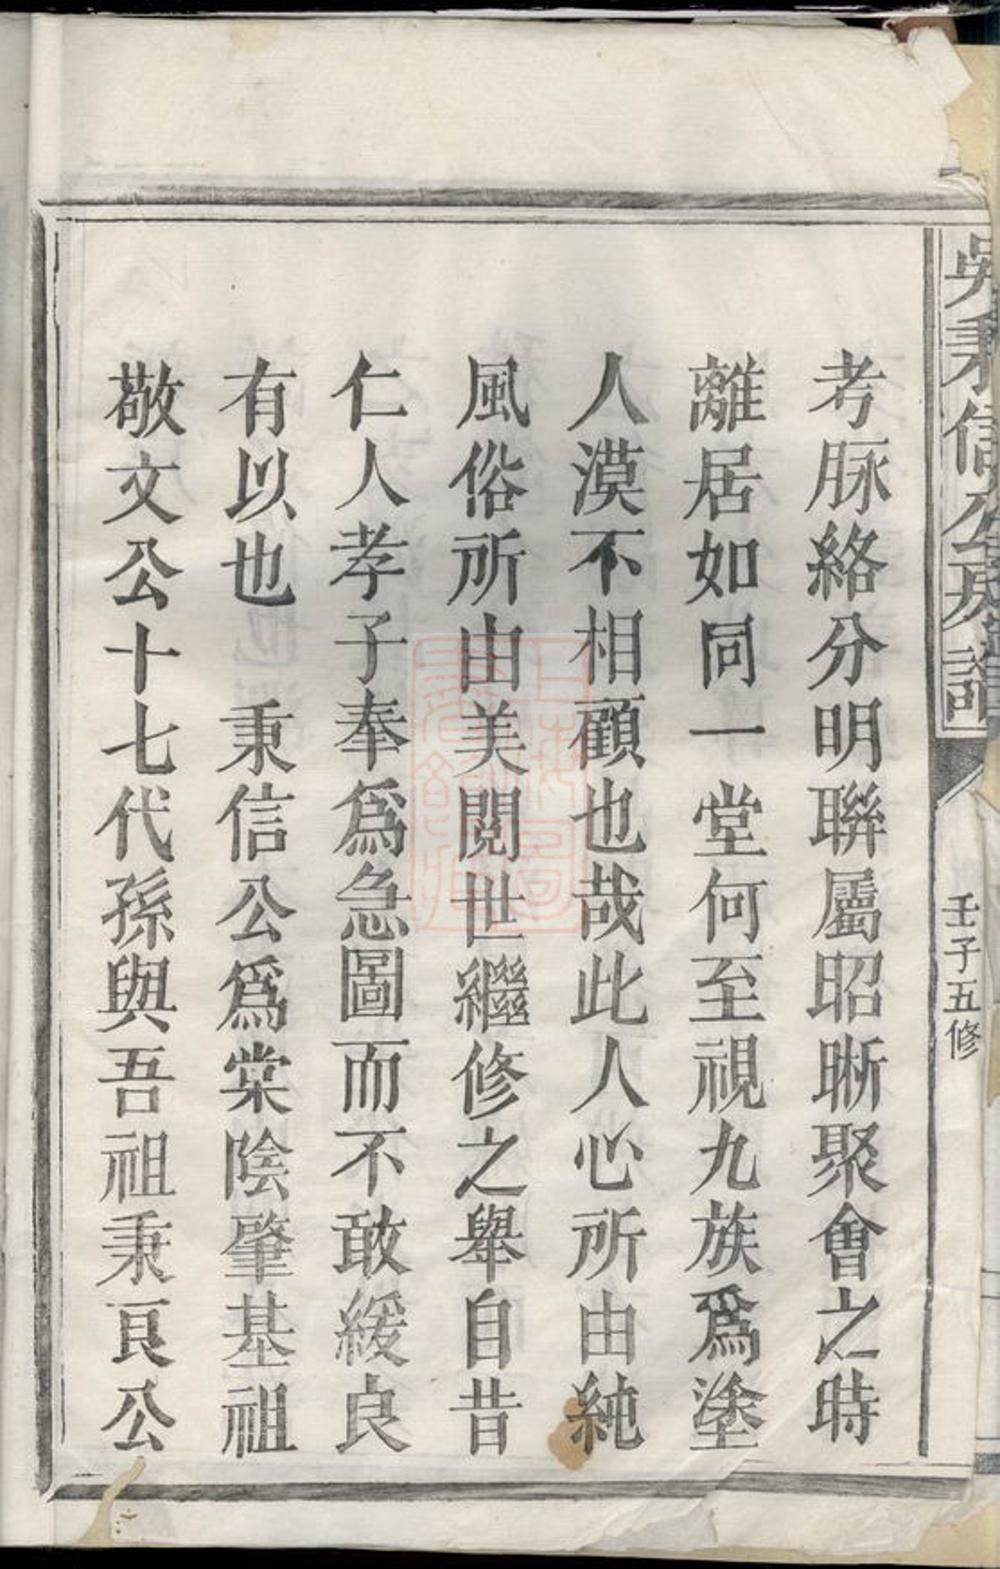 考脉絡分明聯屬昭晰聚會之時
離居如同一堂何至視九族爲塗
人漠不相顧也哉此人心所由純
風俗所由美閱世繼修之舉自昔
仁人孝子奉爲急圖而不敢緩良
有以也　秉信公爲棠陰肇基祖
敬文公十七代孫與吾祖秉良公
吳秉信公房譜
壬子五修